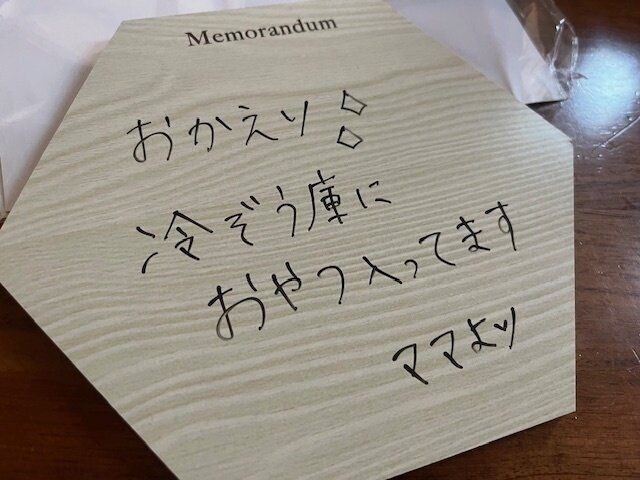 Memorandum
おかえり◇◇
冷ぞう庫に
おやつ入ってます
ママより